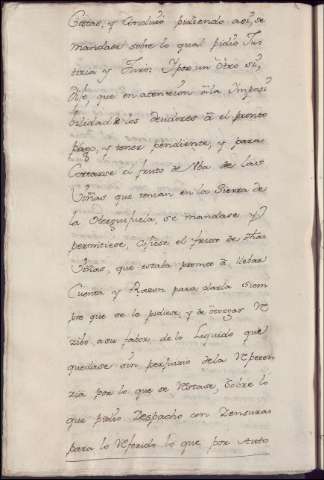 Costas, y Concluió pidiendo así, se
mandase sobre lo qual pidio Jus
ticia y Juró: Y por un otro si,
Dijo, que en atencion à la Imposi
bilidad de los deudores à el pronto
pago, y tener pendiente, y para
Cortarse el fruto de Uba de las
Viñas que tenian en la Sierra de
la Oteguijuela, se mandase y
permitiese, el fruto de dhas
Viñas, que estaba promto à llebar
Cuenta y Razon para darla siem
pre que se le pidiese, y de otorgar Re
zibo, a su fabor, de lo Liquido que
quedase sin perjuicio de la
por lo que se Restase, Sobre lo
que pidio Despacho con Zensuras
para lo Referido lo que por Auto